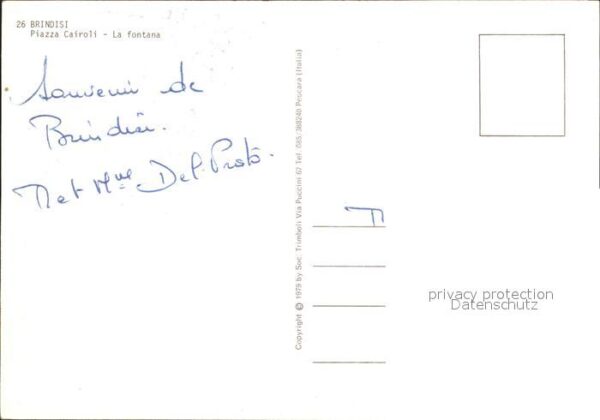 26 BRINDISI
Piazza Cairoli - La fontana
Souvenir de
Brindisi.
M et Mme Del Prato.
Copyright © 1979 by Soc. Trimboli Via Puccini 67 Tel. 085/388240 Pescara (Italia)
privacy protection
Datenschutz